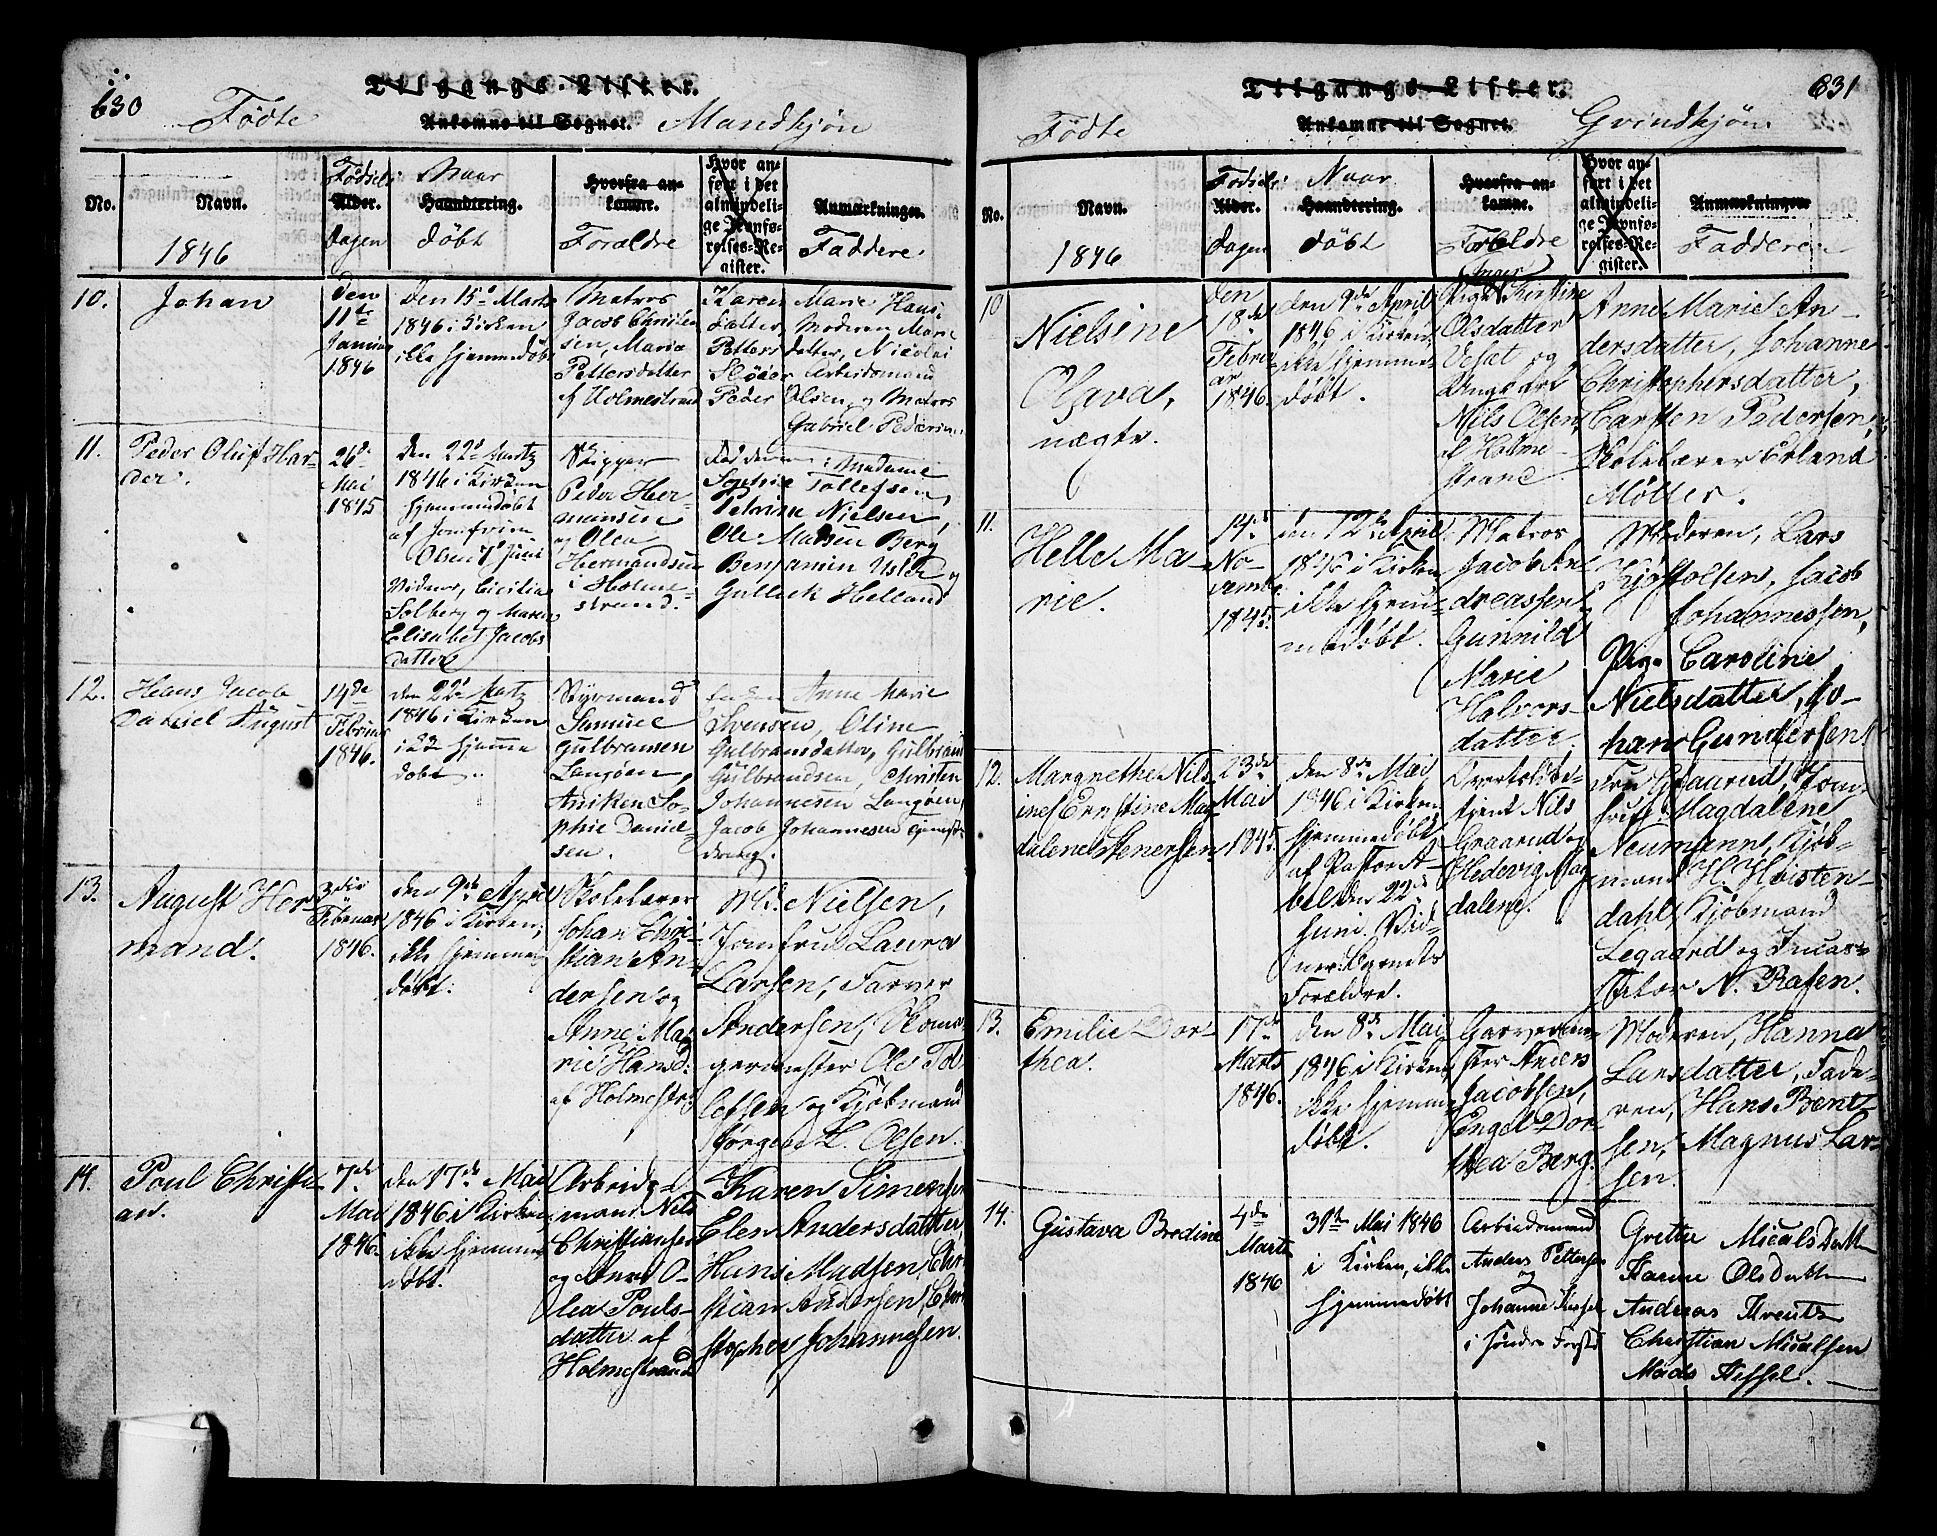 630
Tilgangs-Lister.
Født
Ankomne til Sognet.
Mandkjön
No.
Navn.
1846
Fødsels
Alder.
dagen
Naar
Haandtering.
døbt
Hvorfra an-
komne.
Forældre
Hvor an-
ført i det
almindeli-
ge Jevnfø-
relses-Re-
gister.
Anmærkninger.
Faddere.
10.
Johan
den
11te
Januar
1846
den 15de Marts
1846 i Kirken
ikke hjemmedøbt
Matros
Jacob Christen
sen, Maria
Pettersdatter
af Holmestrand
Karen Marie Hans
datter, Moderen, Marie
Petters datter, Nicolai
Arbeidsmand
Peder Olsen, og Matros
Gabriel Pedersen.
11.
Peder Oluf Har-
der.
26de
Mai
1845
den 22de Martz
1846 i Kirken
hjemmedøbt
af Jomfru
Olsen Juni
Vidner, Cicilia
Solberg og Maren
Elisabet Jacobs
datter
Skipper
Peder Her-
mansen
og Olea
Hermandsen
i Holme-
strand.
Fadderne: Madame
Sophie Tollefsen,
Petrine Nielsen,
Ole Madsen Berg
Benjamin Usler og
Gullick Helland
12.
Hans Jacob
Daniel August
14de
Februar
1846.
den 22de Martz
1846 i Kirken
hjemme
døbt
Styrmand
Samuel
Gulbransen
Langøen,
Aniken So-
phie Daniel-
sen.
Anne Marie
Svensen, Oline
Gulbransdatter, Gulbrand
Gulbrandsen, Christen
Johannesen Langøen,
Jacob Johannesen
13.
August Her-
mand.
3die
Februar
1846.
den 9de April
1846 i Kirken,
ikke hjemme
døbt.
Skolelærer
Johan Chri-
stian An-
dersen og
Anne Ma-
rie Hansd.
af Holmestr.
Md. Nielsen,
Jomfru Laura
Larsen, Farver
Andersen, Skoma-
germester Ole Tol-
lefsen og Kjøbmand
Jørgen L. Olsen.
14.
Poul Christi-
an.
7de
Mai
1846.
den 17de Mai
1846 i Kirken
ikke hjemme
døbt.
Arbeids-
mand Nils
Christiansen
og Anne O-
lea Pouls-
datter af
Holmestrand
Karen Simensen
Elen Andersdatter,
Hans Madsen, Chri-
stian Andersen, Chri-
stopher Johannesen.
631
Tilgangs-Lister.
Fødte
Ankomne til Sognet.
Qvindkjön.
No.
Navn.
1846
Fødsels
Alder.
dagen
Naar
Haandtering.
døbt
Hvorfra an-
komne.
Forældre
Hvor an-
ført i det
almindeli-
ge Jevnfø-
relses-Re-
gister.
Anmærkninger.
Fadderen
10
Nielsine
Olava,
uægte.
den
18de
Febru
ar
1846.
den 9de April
1846 i Kirken
ikke hjemme
døbt.
Inger
Pige Kirstine
Olsdatter
og
Ungkarl
Nils Olsen
af Holme-
strand.
Anne Marie An-
dersdatter, Johanne
Christophersdatter,
Carsten Pedersen,
Skolelærer Erland
Møller.
11.
Helle Ma-
rie.
14de
No-
vembr
1845.
den 12te April
1846 i Kirken
ikke hjem-
medøbt.
Matros
Jacob An-
dreassen
Gunnild
Marie
Halvors-
datter
Moderen, Lars
Kjøstolsen, Jacob
Johannessen,
Pige Caroline
Nielsdatter, Jo-
han Gundersen
12.
Margrethe Nils
ine Ernstine Mag-
dalene Stenersen
23de
Mai
1845.
den 8de Mai
1846 i Kirken
hjemmedøbt
af Pastor A-
bel den 22de
Juni. Vid-
ner: Barnets
Forældre.
Overtoldbe-
tjent Nils
Graarud og
Hedevig Mag
dalene.
Fru Graarud, Jom-
fru Magdalene
Neumann, Kjøb-
mand H. Høisten-
dahl, Kjøbmand
Legaard og
N. Rafen.
13.
Emilie Dor-
thea.
17de
Marts
1846.
den 8de Mai
1846 i Kirken,
ikke hjemme
døbt.
Garverme-
ster Anders
Jacobsen,
Engel Dor-
thea Berg.
Moderen, Hanna
Larsdatter, Fade-
ren, Hans Bent-
sen, Magnus Lar-
sen.
14.
Gustava Bredine
4de
Marts
1846
31te Mai 1846
i Kirken, ikke
hjemmedøbt
Arbeidsmand
Anders Pettersen
og
Johanne
i Søndre
Grethe MicalsDatt
Karine OlsDatter
Andreas Kreutz
Christian Micalsen
Mads Hessel.